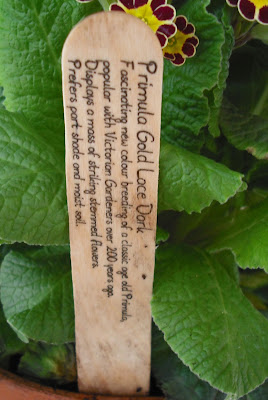 Primula Gold Lace Dark
Fascinating new colour breeding of a classic age old Primula,
popular with Victorian Gardeners over 200 years ago.
Displays a mass of striking stemmed flowers.
Prefers part shade and moist soil.